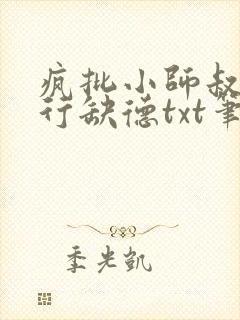 疯批小师叔
行缺德txt笔
季光凯